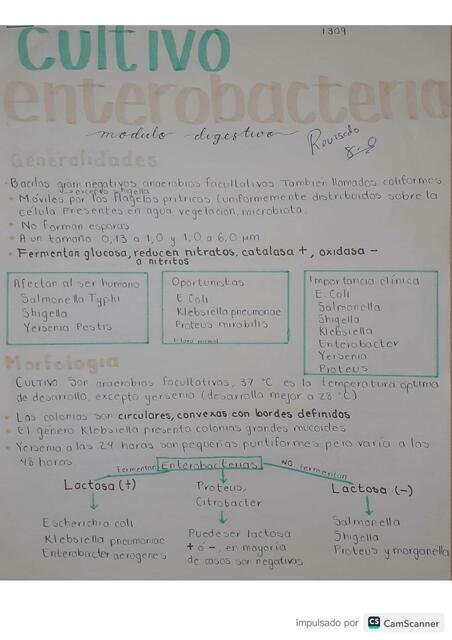 1309
Cultivo
enterobacteria
modulo digestivo
Revisado
Generalidades
• Bacilos gram negativos, anaerobios facultativos También llamados coliformes.
↳ excepto shigella
• Móviles por los flagelos pritricas (uniformemente distribuidos sobre la
célula. Presentes en agua, vegetación, microbiota.
• No forman esporas
• A un tamaño: 0,13 a 1,0 y 1,0 a 6,0 µm
• Fermentan glucosa, reducen nitratos, catalasa +, oxidasa -
a nitritos
Afectan al ser humano
Salmonella Typhi
Shigella
Yersenia Pestis
Oportunistas
E. Coli
Klebsiella pneumonae
Proteus mirabilis
Flora normal
Importancia clínica
E. Coli
Salmonella
Shigella
Klebsiella
Enterobacter
Yersenia
Proteus
Morfología
Cultivo. Son anaerobios facultativos, 37 °C es la temperatura óptima
de desarrollo, excepto yersenia (desarrolla mejor a 28 °C)
• Las colonias son circulares, convexas con bordes definidos
• El género Klebsiella presenta colonias grandes mucoides
• Yersenia a las 24 horas son pequeñas puntiformes pero varia a las
48 horas.
Fermentan Enterobacterias NO fermentan
Lactosa (+)
Escherichia coli
Klebsiella pneumoniae
Enterobacter aerogenes
Proteus,
Citrobacter
Puede ser lactosa
+ ó -, en mayoría
de casos son negativas
Lactosa (-)
Salmonella
Shigella
Proteus y morganella
impulsado por CS CamScanner